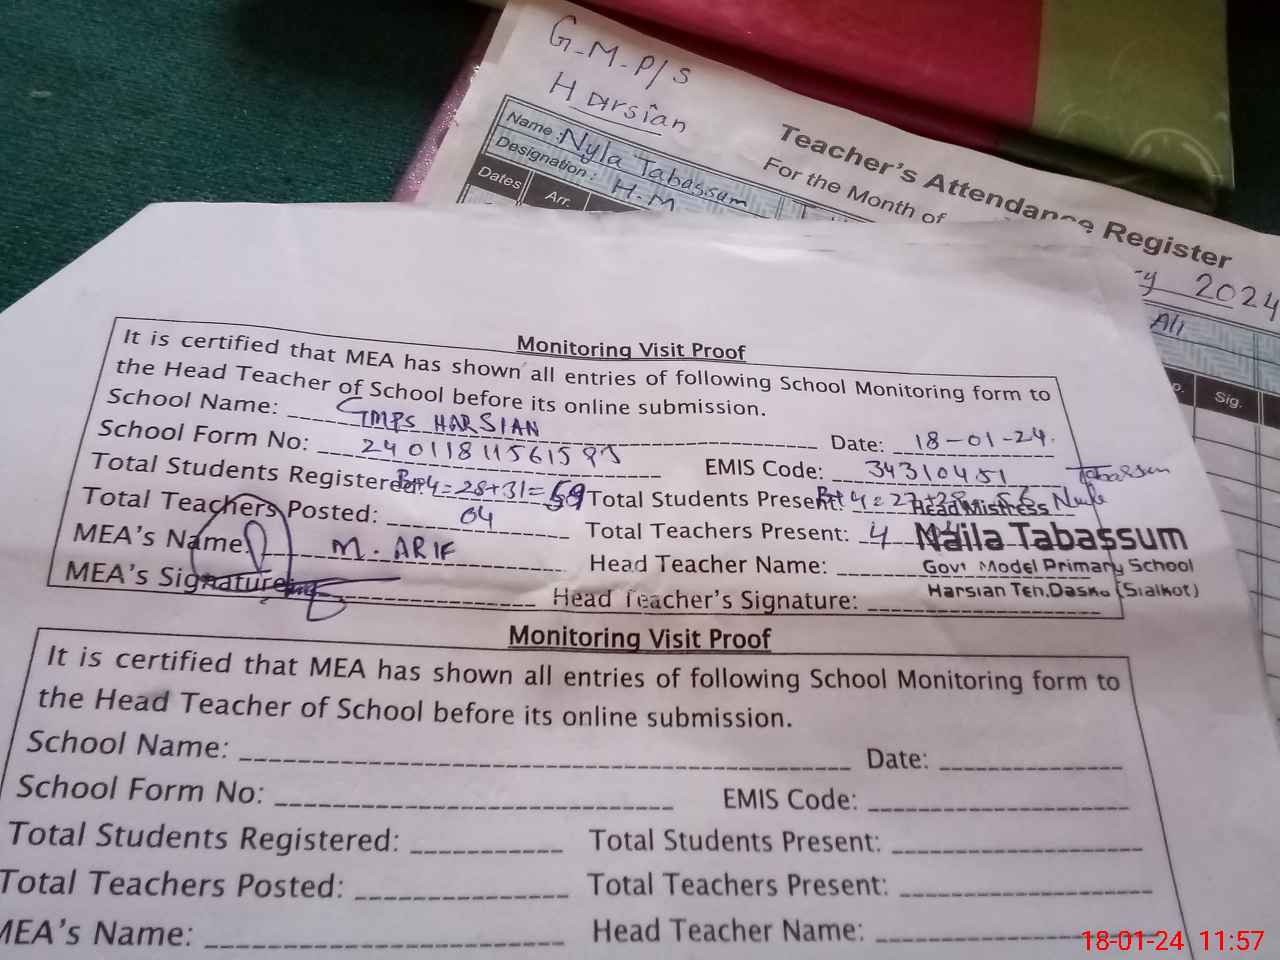 G-M-P/S
Harsian
Teacher's Attendance Register
For the Month of
2024
Name: Nyla Tabassum
Designation: H.M
Ali
Dates Arr.
Sig.
Monitoring Visit Proof
It is certified that MEA has shown all entries of following School Monitoring form to
the Head Teacher of School before its online submission.
School Name: GMPS HARSIAN Date: 18-01-24.
School Form No: 24011811561593 EMIS Code: 34310451
Total Students Registered: B+4=28+31=59 Total Students Present: 56
Total Teachers Posted: 04 Total Teachers Present: 4
MEA's Name: M. ARIF Head Teacher Name:
MEA's Signature: Head Teacher's Signature:
Tabassum
Head Mistress
Naila Tabassum
Govt Model Primary School
Harsian Teh.Daska (Sialkot)
Monitoring Visit Proof
It is certified that MEA has shown all entries of following School Monitoring form to
the Head Teacher of School before its online submission.
School Name: Date:
School Form No: EMIS Code:
Total Students Registered: Total Students Present:
Total Teachers Posted: Total Teachers Present:
MEA's Name: Head Teacher Name:
18-01-24 11:57